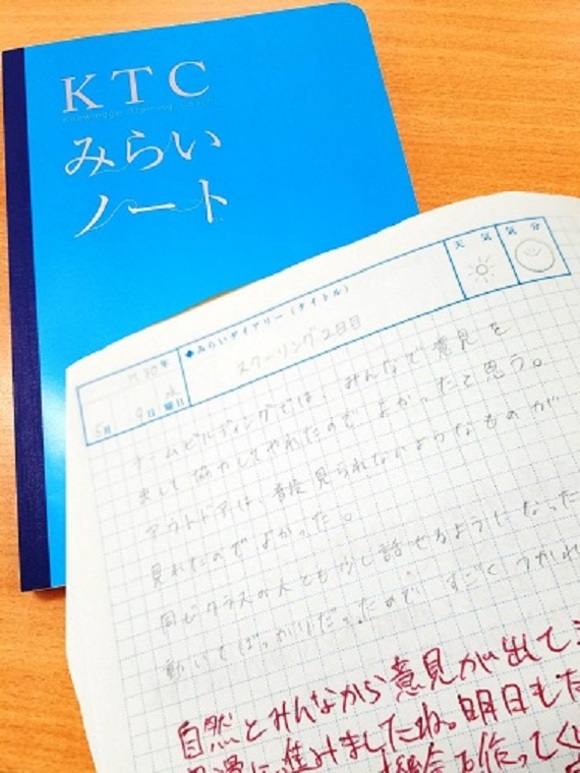 KTC
Knowledge Training Coach
みらい
ノート
天気 気分
◆みらいダイアリー（タイトル）
スクーリング2日目
H30年
5月 9日 水曜日
チームビルディングでは、みんなで意見を
出して協力してやれたのでよかったと思う。
アウトドアは、普段見られないようなものが
見れたのでよかった。
同じクラスの人とも少し話せるようになった
動いてばっかりだったので、すごくつかれ
自然とみんなから意見が出て
に進みましたね。明日もた
機会を作ってく